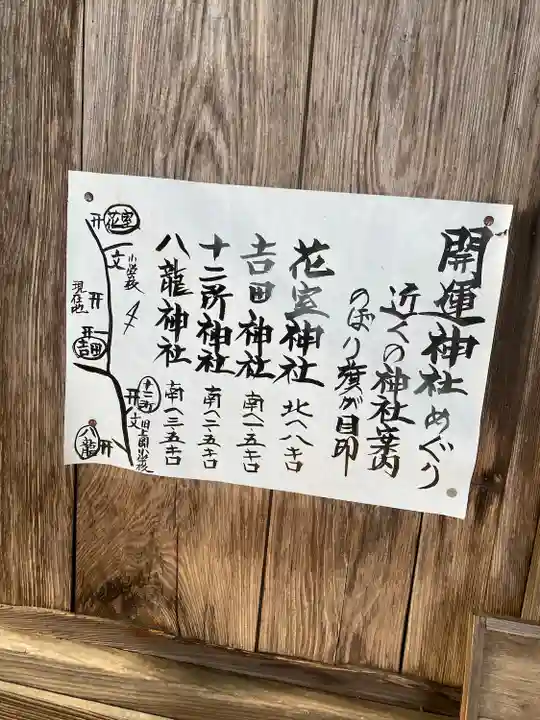 開運神社めぐり
近くの神社案内
のぼり旗が目印
花室神社 北へ八キロ
吉田神社 南へ一・五キロ
十二所神社 南へ二・五キロ
八龍神社 南へ三・五キロ
花室
文 小学校
現在地
吉田
十二所
文 旧上関小学校
八龍